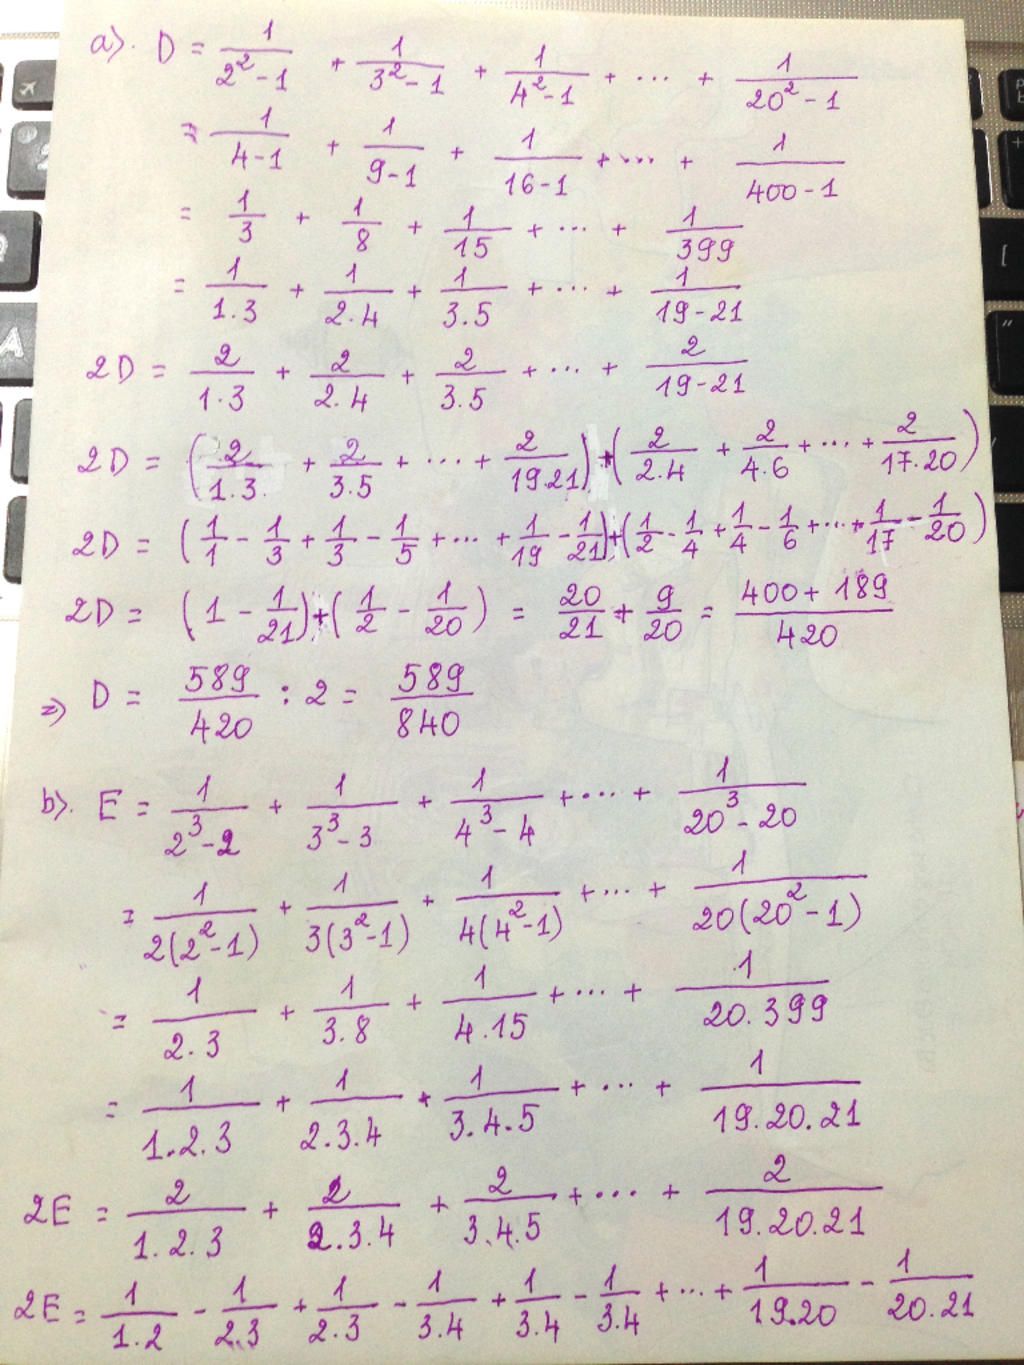 a). D = 1/(2²-1) + 1/(3²-1) + 1/(4²-1) + ... + 1/(20²-1)
= 1/(4-1) + 1/(9-1) + 1/(16-1) + ... + 1/(400-1)
= 1/3 + 1/8 + 1/15 + ... + 1/399
= 1/(1.3) + 1/(2.4) + 1/(3.5) + ... + 1/(19-21)
2D = 2/(1.3) + 2/(2.4) + 2/(3.5) + ... + 2/(19-21)
2D = (2/(1.3) + 2/(3.5) + ... + 2/(19.21)) + (2/(2.4) + 2/(4.6) + ... + 2/(17.20))
2D = (1/1 - 1/3 + 1/3 - 1/5 + ... + 1/19 - 1/21) + (1/2 - 1/4 + 1/4 - 1/6 + ... + 1/17 - 1/20)
2D = (1 - 1/21) + (1/2 - 1/20) = 20/21 + 9/20 = (400 + 189)/420
=> D = 589/420 : 2 = 589/840
b). E = 1/(2³-2) + 1/(3³-3) + 1/(4³-4) + ... + 1/(20³-20)
= 1/(2(2²-1)) + 1/(3(3²-1)) + 1/(4(4²-1)) + ... + 1/(20(20²-1))
= 1/(2.3) + 1/(3.8) + 1/(4.15) + ... + 1/(20.399)
= 1/(1.2.3) + 1/(2.3.4) + 1/(3.4.5) + ... + 1/(19.20.21)
2E = 2/(1.2.3) + 2/(2.3.4) + 2/(3.4.5) + ... + 2/(19.20.21)
2E = 1/(1.2) - 1/(2.3) + 1/(2.3) - 1/(3.4) + 1/(3.4) - 1/(3.4) + ... + 1/(19.20) - 1/(20.21)